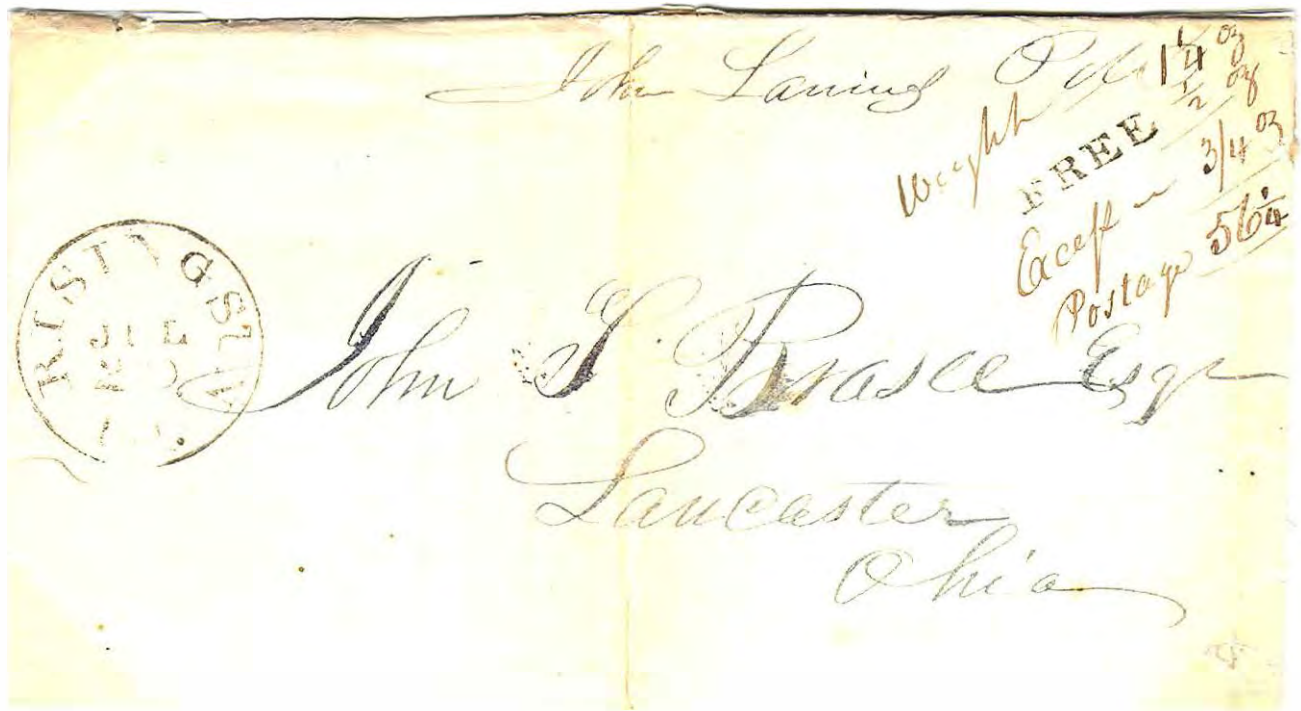 John Laning P M
Weight 1 1/4 oz
1/2 oz
FREE
Excess 3/4 oz
Postage 56 1/4
RISINGSUN
20
John T. Brasee Esqr
Lancaster
Ohio